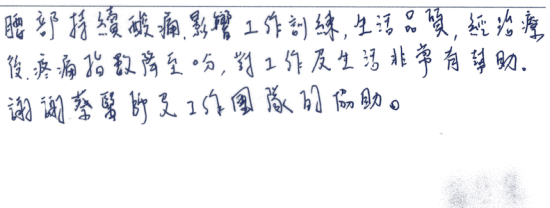 腰部持續酸痛,影響工作訓練,生活品質,經治療
後,疼痛指數降至0分,對工作及生活非常有幫助.
謝謝蔡醫師及工作團隊的協助。